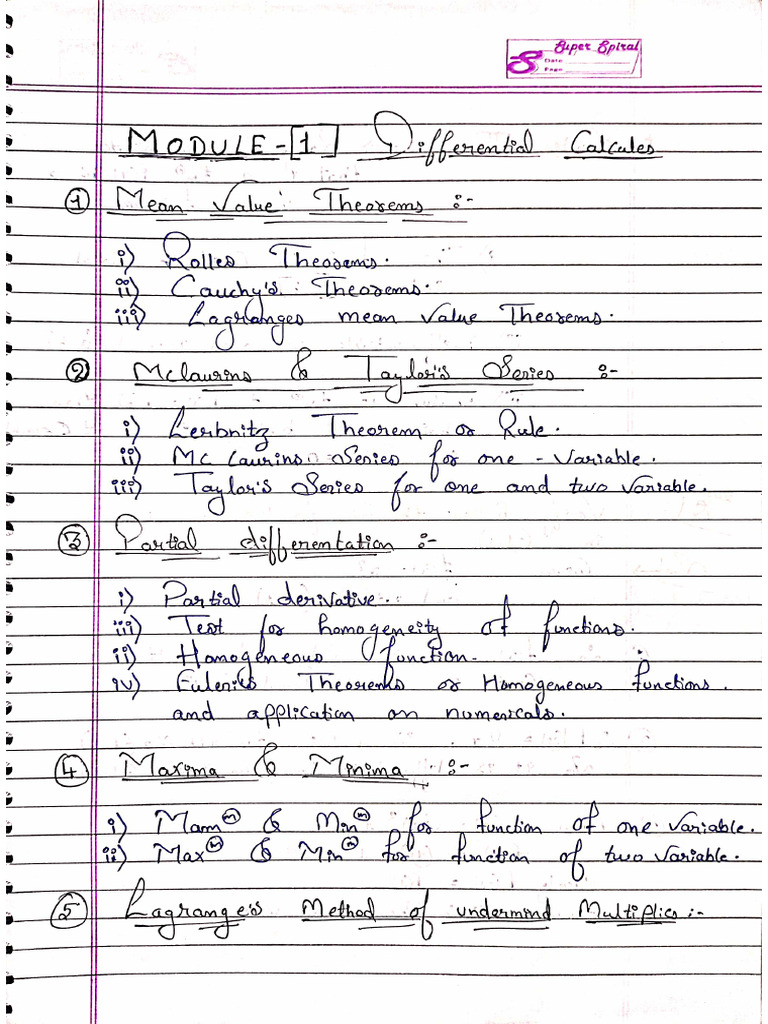 Super Spiral
Date
Page
MODULE-[1] Differential Calcules
① Mean Value Theorems :-
i) Rolles Theorems.
ii) Cauchy's Theorems.
iii) Lagranges mean value Theorems.
② Mclaurins & Taylor's Series :-
i) Leibnitz Theorem or Rule.
ii) Mc Laurins Series for one - Variable.
iii) Taylor's Series for one and two variable.
③ Partial differentation :-
i) Partial derivative.
iii) Test for homogeneity of functions.
ii) Homogeneous function.
iv) Theorems or Homogeneous functions.
and application on numericals.
④ Maxima & Minima :-
i) & Min for function of one variable.
ii) Max & Min for function of two variable.
⑤ Lagrange's Method of undermind Multiplics :-